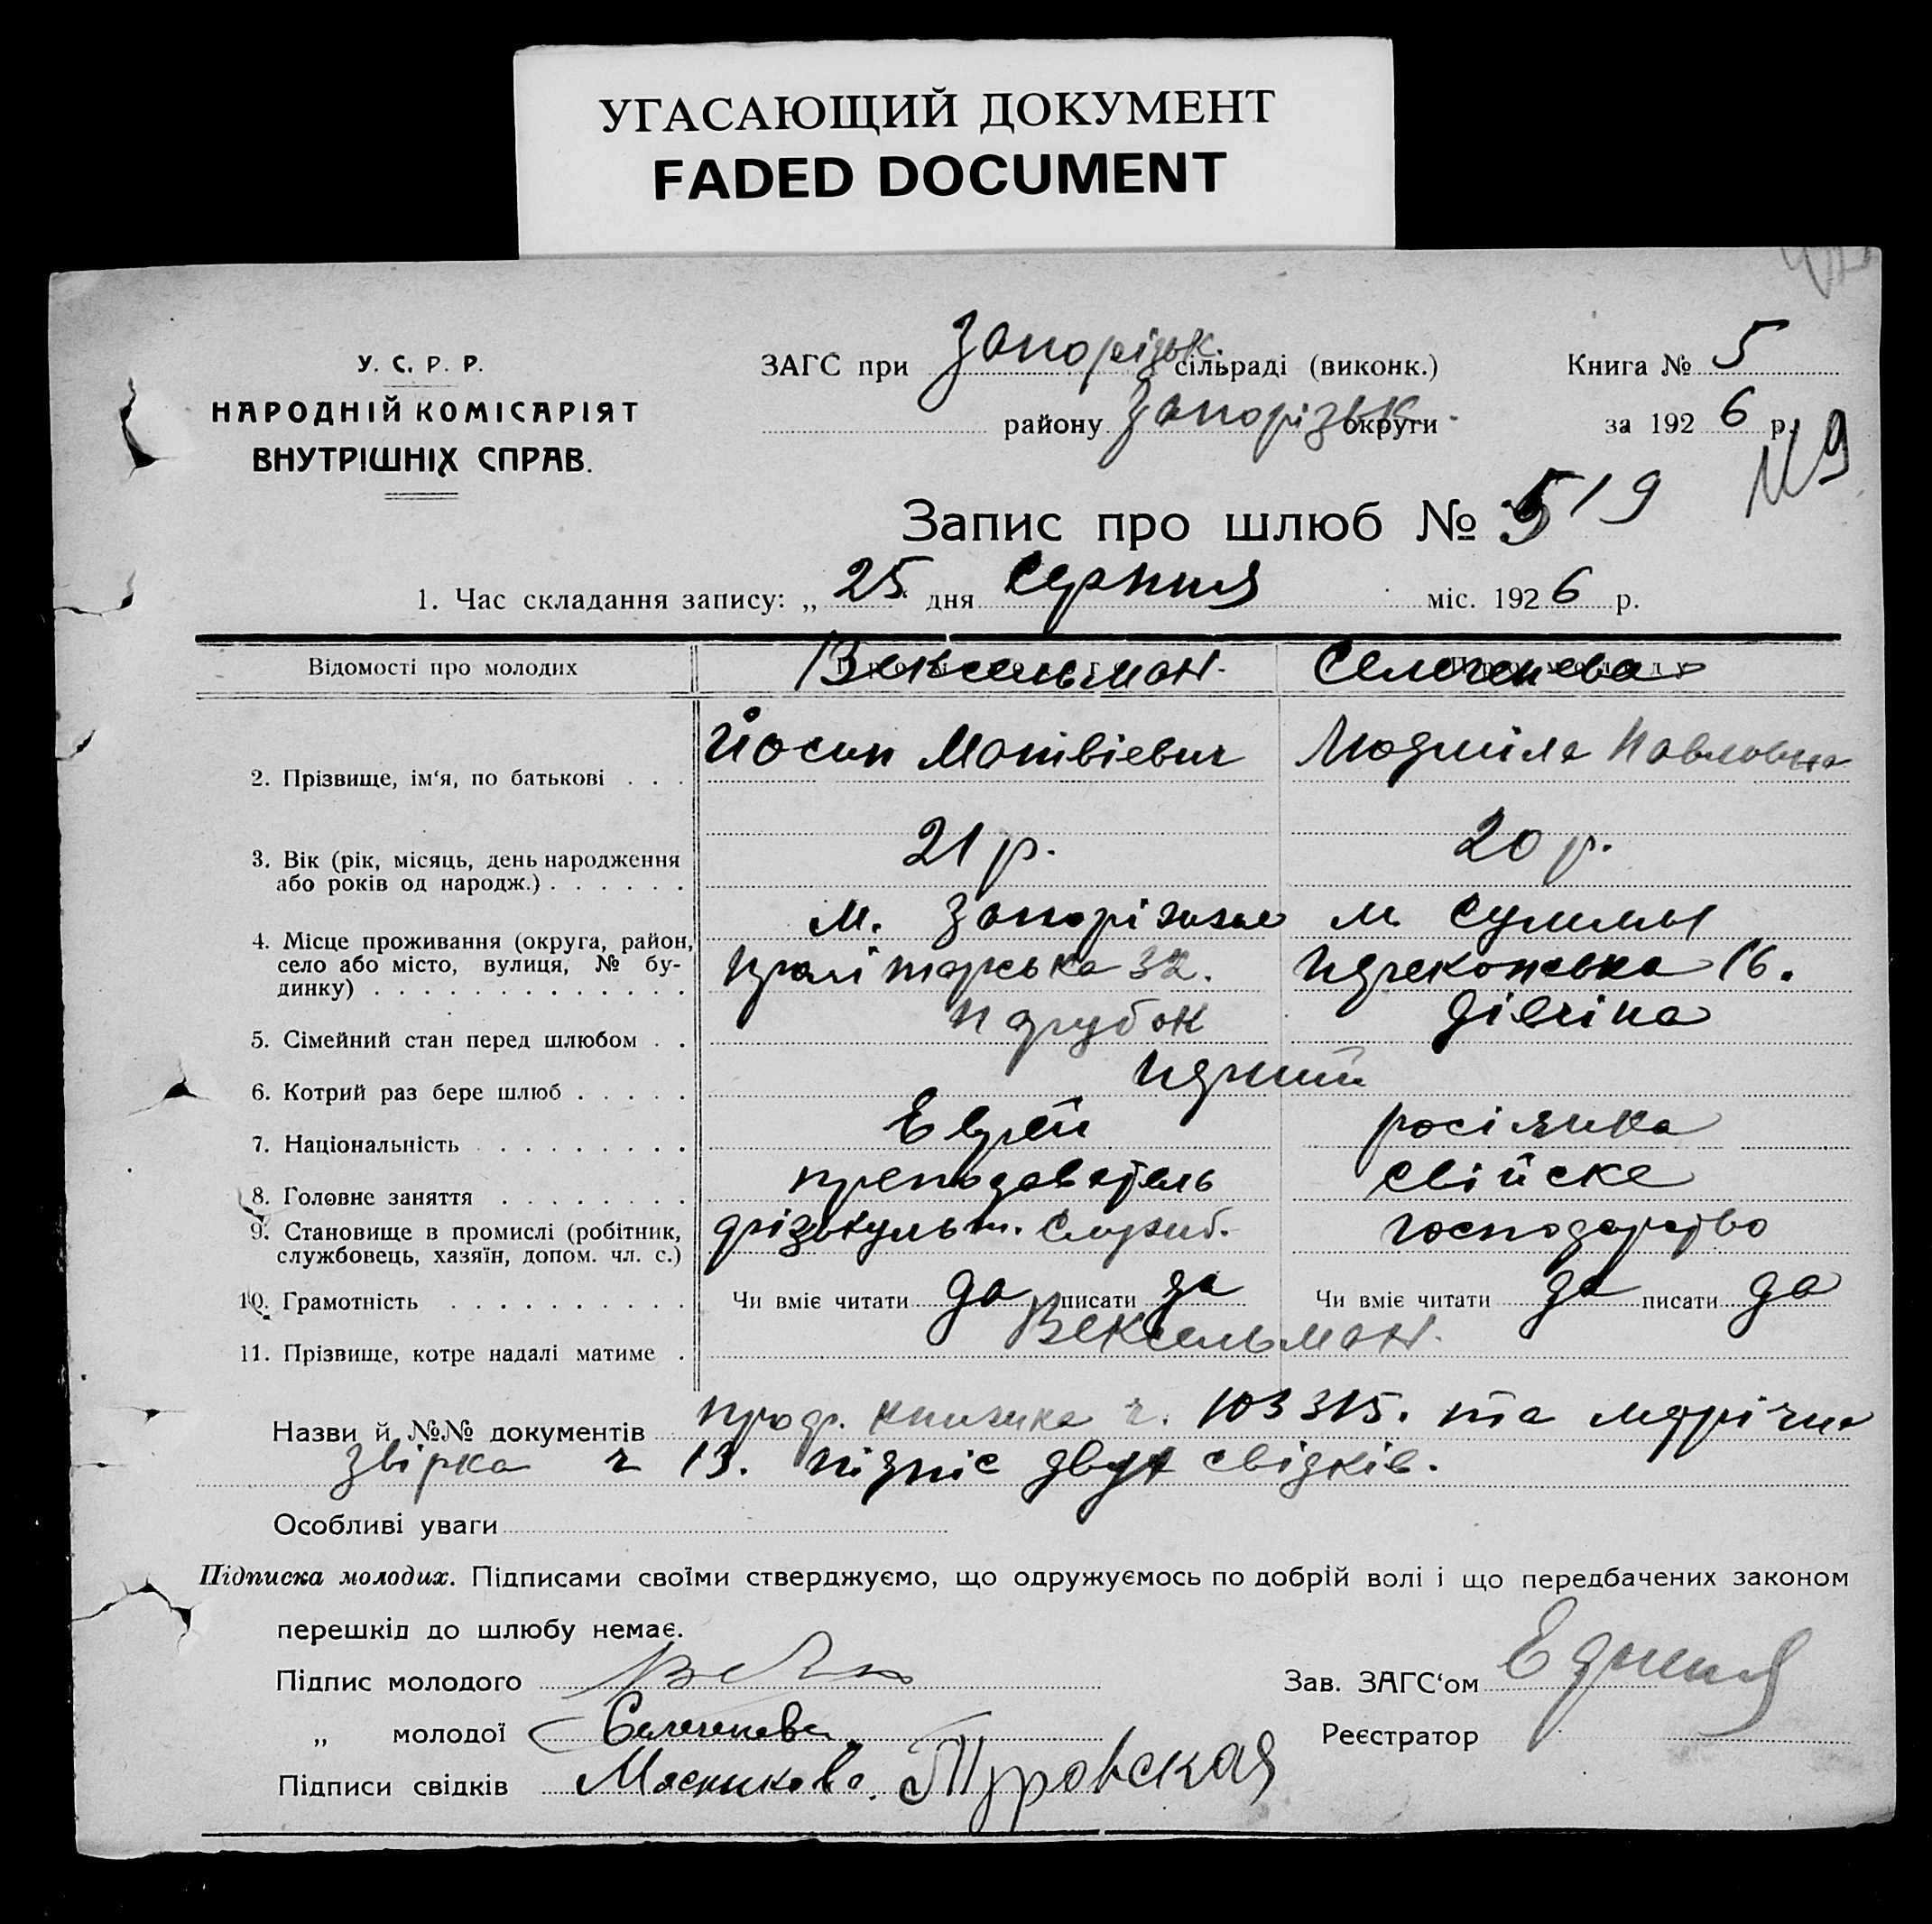 УГАСАЮЩИЙ ДОКУМЕНТ
FADED DOCUMENT
У. С. Р. Р.
НАРОДНІЙ КОМІСАРІЯТ
ВНУТРІШНІХ СПРАВ.
ЗАГС при Запорізьк. сільраді (виконк.)
району Запорізьк. округи
Книга № 5
за 1926 р.
Запис про шлюб № 519
1. Час складання запису: „ 25 дня Серпня міс. 1926 р.
Відомості про молодих Вексельман. Селезенева
2. Прізвище, ім'я, по батькові . . . Йосип Матвієвич Людміла Павловна
3. Вік (рік, місяць, день народження або років од народж.) . . . . . . 21 р. 20 р.
4. Місце проживання (округа, район, село або місто, вулиця, № будинку) . . . . . . . . . . . . . м. Запоріжжя 32. м 16.
5. Сімейний стан перед шлюбом . . парубок дівчіна
6. Котрий раз бере шлюб . . . . . перший
7. Національність . . . . . . . . . Еврей росіянка
8. Головне заняття . . . . . . . . преподаватель свійске
9. Становище в промислі (робітник, службовець, хазяїн, допом. чл. с.) фізкульт. служб. господарство
10. Грамотність . . . . . . . . . . Чи вміє читати да писати да Чи вміє читати да писати да
11. Прізвище, котре надалі матиме . Вексельман.
Назви й №№ документів проф. книжка ч. 103315. та метрічна
ч 13. підпіс двух свідків.
Особливі уваги
Підписка молодих. Підписами своїми стверджуємо, що одружуємось по добрій волі і що передбачених законом
перешкід до шлюбу немає.
Підпис молодого
Зав. ЗАГС'ом
„ молодої
Реєстратор
Підписи свідків Мясникова. Туровская